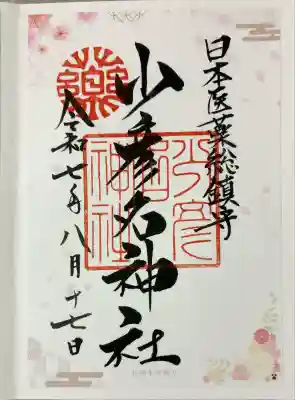 日本医薬総鎮守
少彦名神社
少彦名神社
藥
令和七年八月十七日